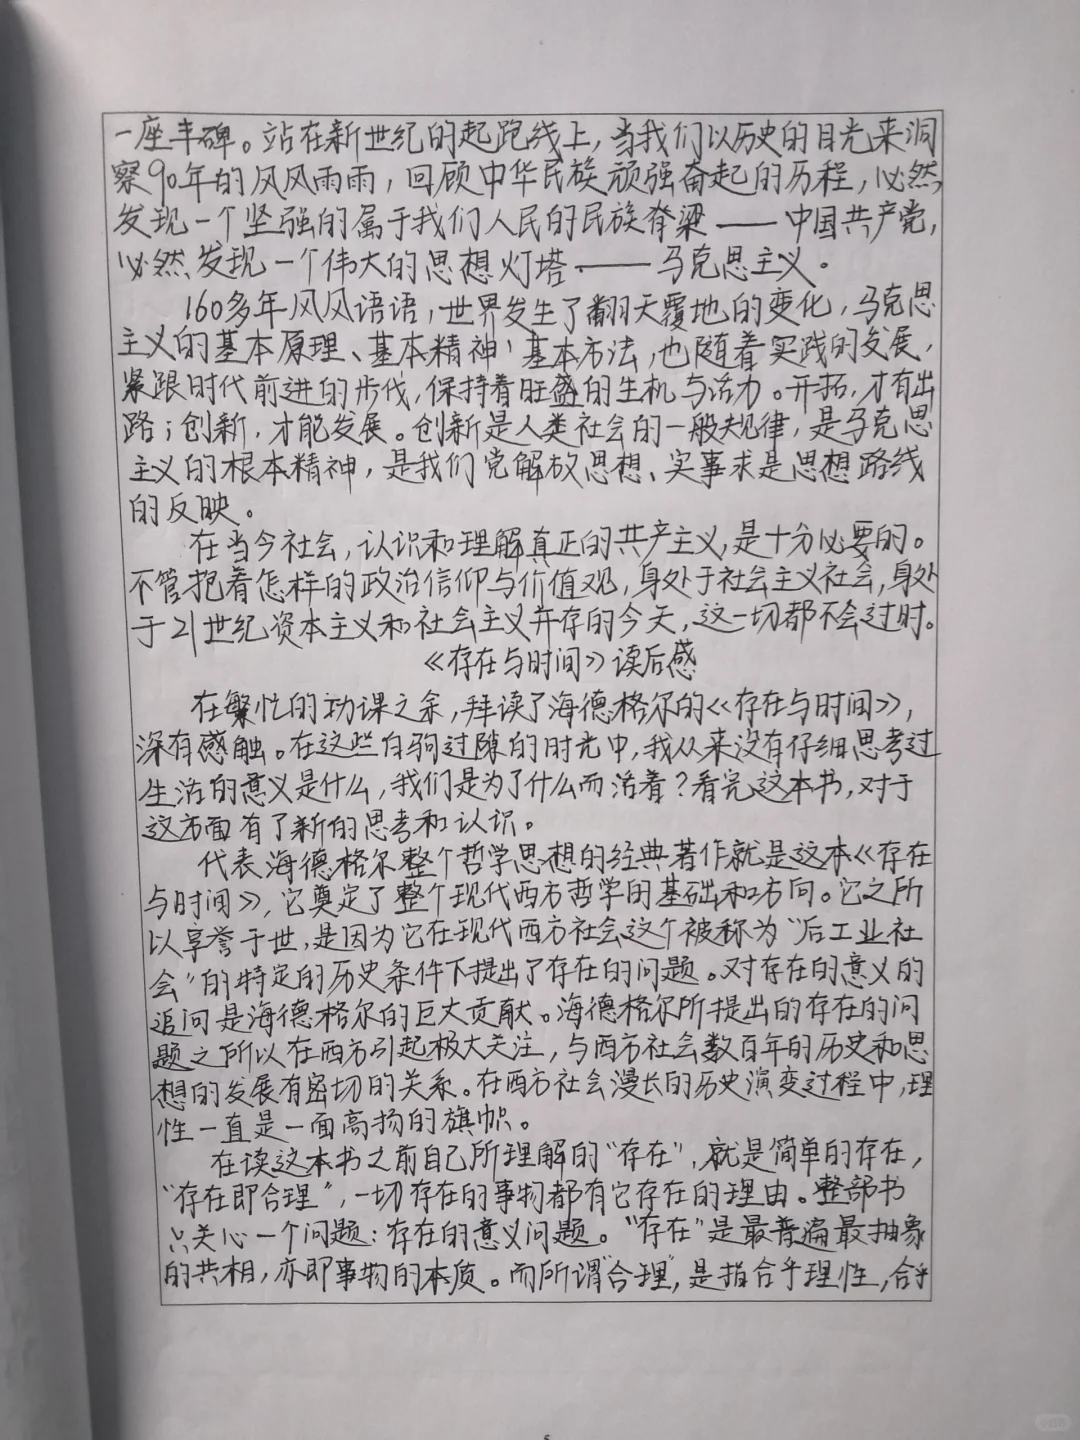 一座丰碑。站在新世纪的起跑线上，当我们以历史的目光来洞
察90年的风风雨雨，回顾中华民族顽强奋起的历程，必然
发现一个坚强的属于我们人民的民族脊梁——中国共产党，
必然发现一个伟大的思想灯塔——马克思主义。
160多年风风语语，世界发生了翻天覆地的变化，马克思
主义的基本原理、基本精神、基本方法，也随着实践的发展，
紧跟时代前进的步伐，保持着旺盛的生机与活力。开拓，才有出
路；创新，才能发展。创新是人类社会的一般规律，是马克思
主义的根本精神，是我们党解放思想、实事求是思想路线
的反映。
在当今社会，认识和理解真正的共产主义，是十分必要的。
不管抱着怎样的政治信仰与价值观，身处于社会主义社会，身处
于21世纪资本主义和社会主义并存的今天，这一切都不会过时。
《存在与时间》读后感
在繁忙的功课之余，拜读了海德格尔的《存在与时间》，
深有感触。在这些白驹过隙的时光中，我从来没有仔细思考过
生活的意义是什么，我们是为了什么而活着？看完这本书，对于
这方面有了新的思考和认识。
代表海德格尔整个哲学思想的经典著作就是这本《存在
与时间》，它奠定了整个现代西方哲学的基础和方向。它之所
以享誉于世，是因为它在现代西方社会这个被称为“后工业社
会”的特定的历史条件下提出了存在的问题。对存在的意义的
追问是海德格尔的巨大贡献。海德格尔所提出的存在的问
题之所以在西方引起极大关注，与西方社会数百年的历史和思
想的发展有密切的关系。在西方社会漫长的历史演变过程中，理
性一直是一面高扬的旗帜。
在读这本书之前自己所理解的“存在”，就是简单的存在，
“存在即合理”，一切存在的事物都有它存在的理由。整部书
只关心一个问题：存在的意义问题。“存在”是最普遍最抽象
的共相，亦即事物的本质。而所谓“合理”，是指合乎理性，合乎
5
小红书